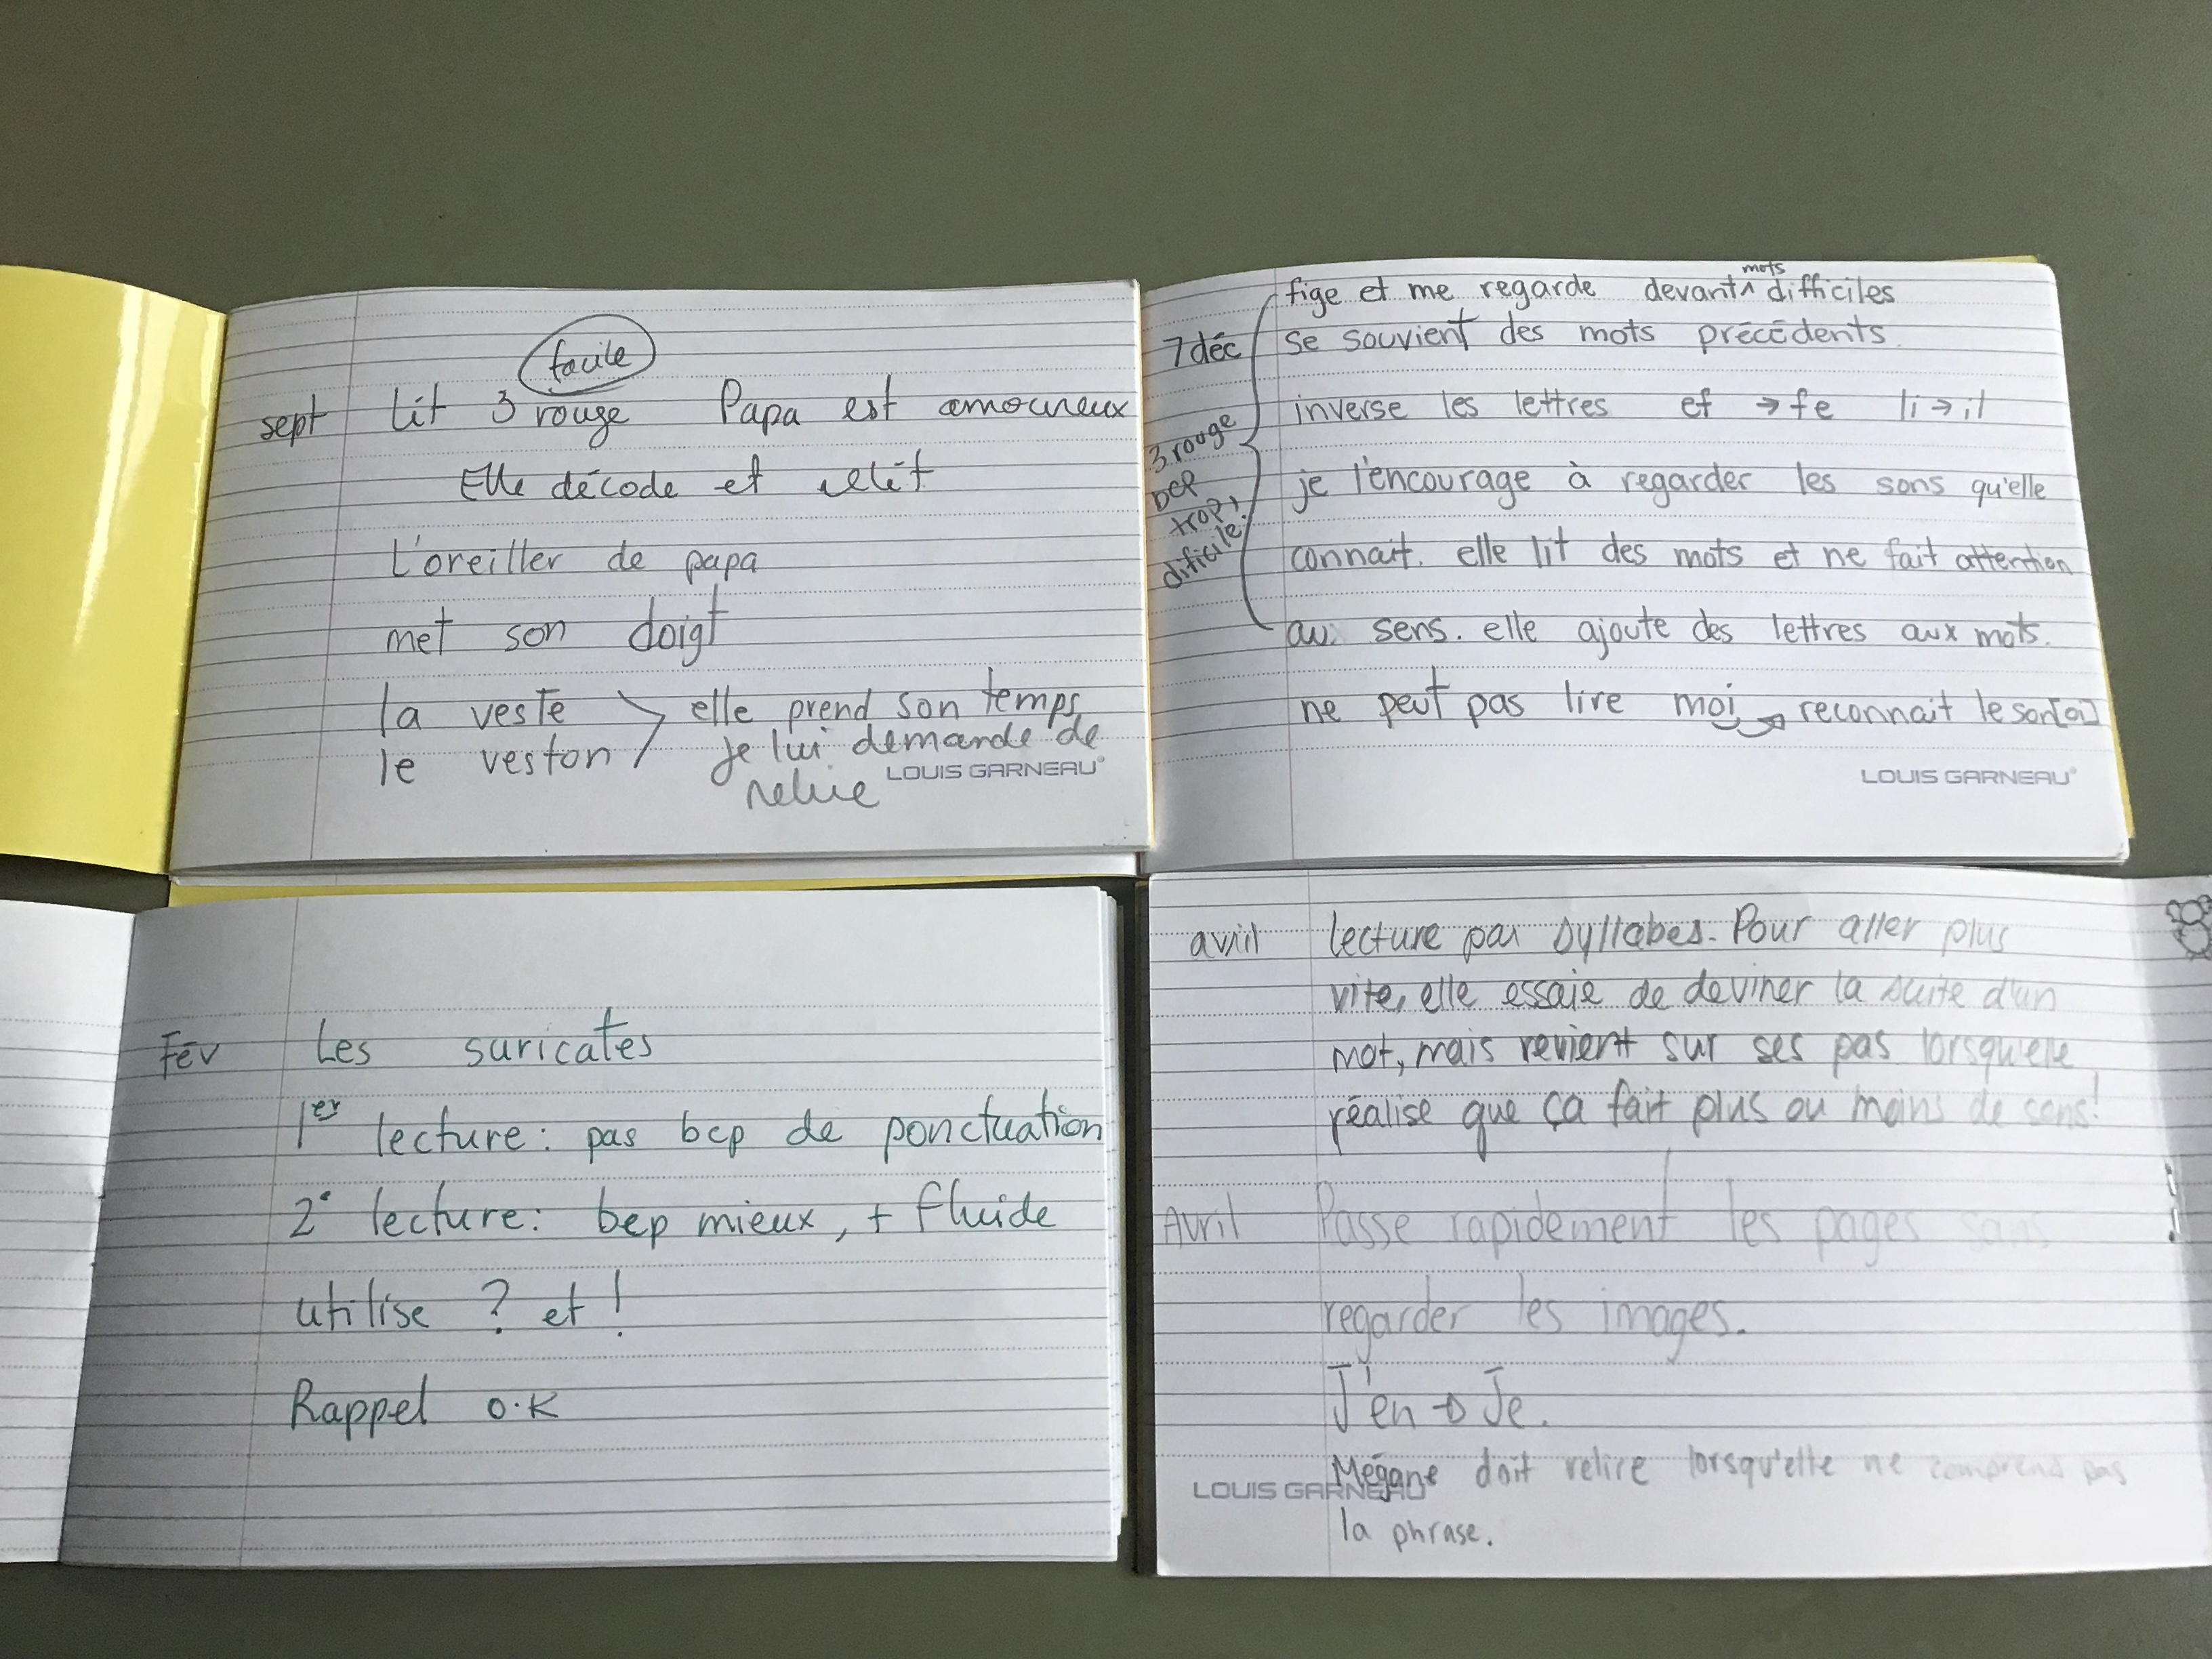 facile
sept lit 3 rouge Papa est amoureux
Elle décode et relit
L'oreiller de papa
met son doigt
la veste elle prend son temps
le veston je lui demande de
relire
LOUIS GARNEAU
fige et me regarde devant mots difficiles
7 déc se souvient des mots précédents.
inverse les lettres ef → fe li → il
3 rouge
bcp
trop
dificile.
je l'encourage à regarder les sons qu'elle
connait. elle lit des mots et ne fait attention
au sens. elle ajoute des lettres aux mots.
ne peut pas lire moi → reconnait le son [oi]
LOUIS GARNEAU
Fév Les suricates
1er lecture: pas bcp de ponctuation
2e lecture: bcp mieux, + fluide
utilise ? et !
Rappel O.K
avril lecture par syllabes. Pour aller plus
vite, elle essaie de deviner la suite d'un
mot, mais revient sur ses pas lorsqu'elle
réalise que ça fait plus ou moins de sens!
Avril Passe rapidement les pages sans
regarder les images.
J'en → Je.
Mégane doit relire lorsqu'elle ne comprend pas
LOUIS GARNEAU
la phrase.